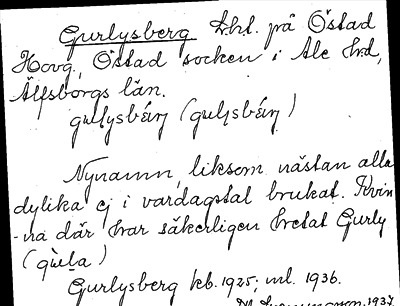 Gurlysberg Lht. på Östad
Hovg, Östad socken i Ale hd,
Älfsborgs län.
Nynamn, liksom nästan alla
dylika ej i vardagstal brukat. Kvin
-na där har säkerligen hetat Gurly
Gurlysberg keb. 1925; ml. 1936.
1937